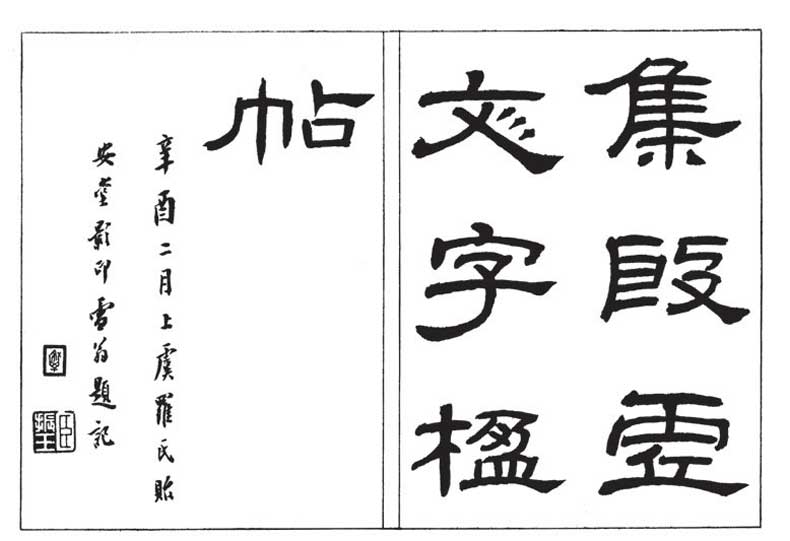 集殷虛
文字楹
帖
辛酉二月上虞羅氏貽
安堂影印雪翁題記
臣振玉